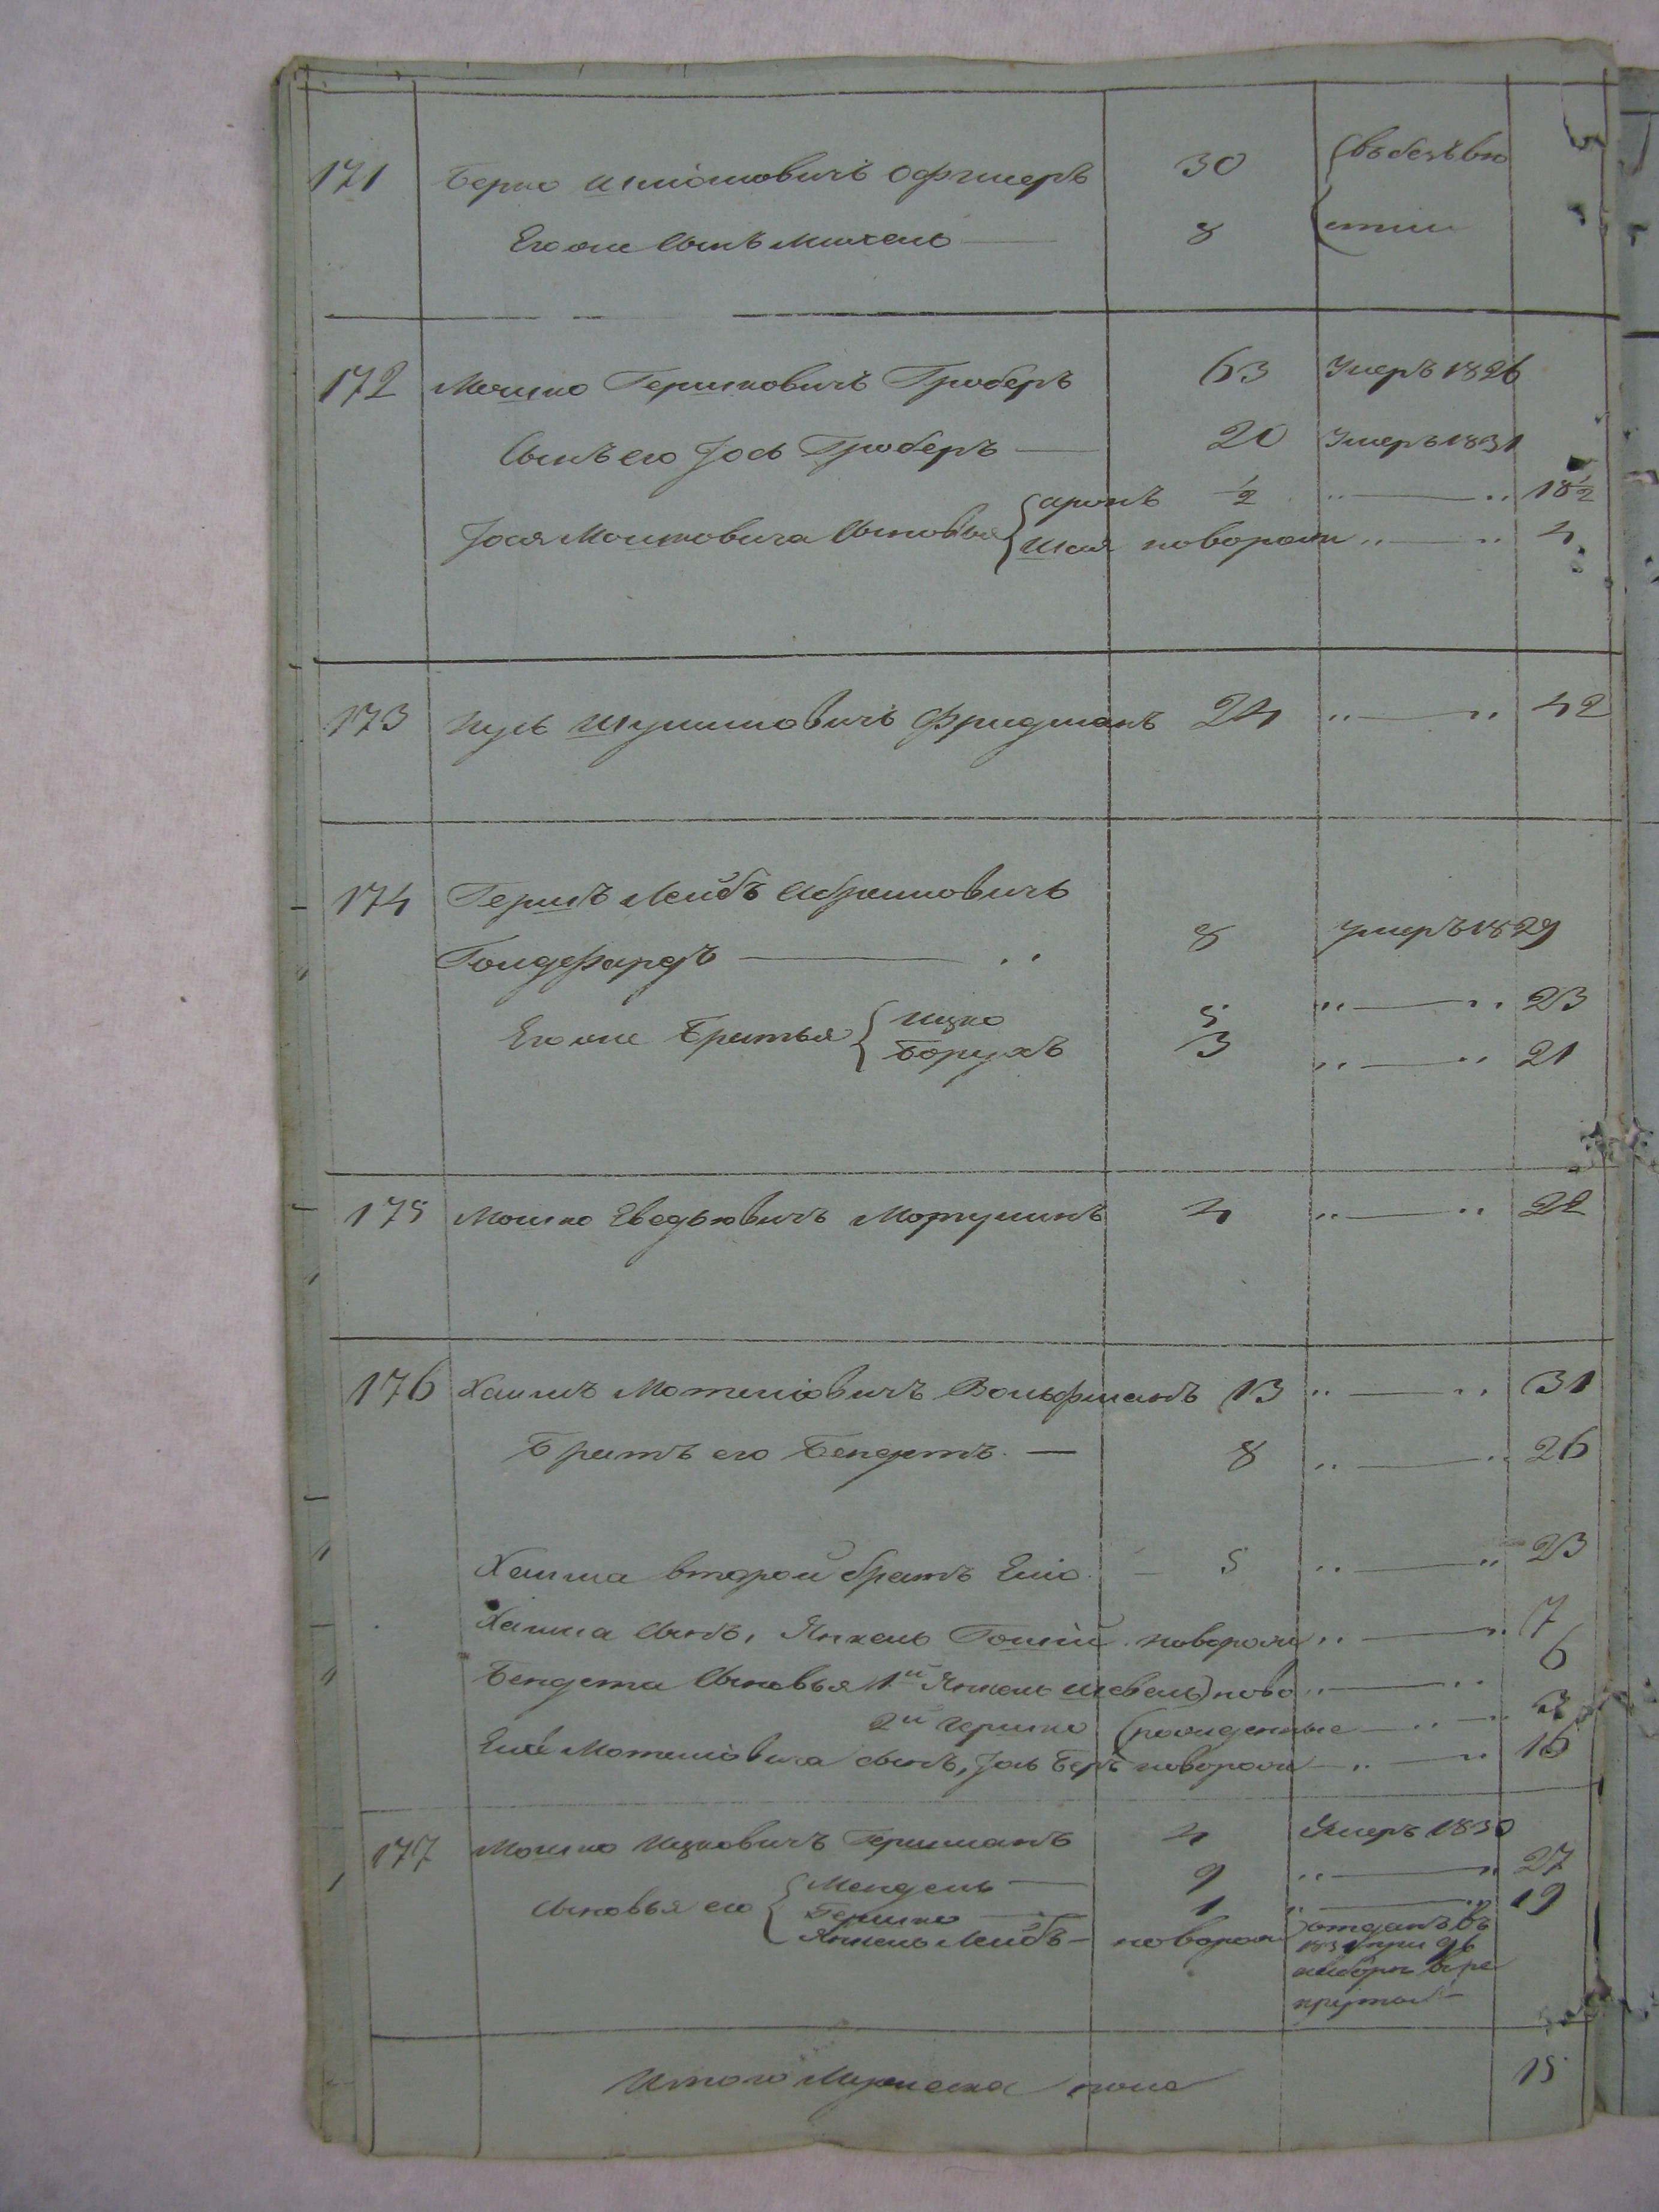 171 Берко Шліомовичъ Офгмеръ 30 въ безъвѣ
Его же Сынъ Михель — 8 стніи
172 Мошко Гершковичъ Гроберъ 63 Умеръ 1826
Сынъ его Іось Гроберъ — 20 Умеръ 1831
Іося Мошковича Сыновья Аронъ ½ " — " 18½
Шая новорож " — " 4
173 Нусь Шулимовичъ Фридманъ 24 " — " 42
174 Гершъ Лейбъ Абрамовичъ
Голдфардъ — " 8 умеръ 1829
Его же Братья Ицко 5 " — " 23
Борухъ 3 " — " 21
175 Мошко Іведьковичъ 4 " — " 22
176 Хаимъ Мотеліовичъ Вольфманъ 13 " — " 31
Братъ его Бендетъ — 8 " — " 26
Хаима второй братъ Еліо — 5 " — " 23
Хаима Сынъ, Янкель новорож " — " 7
Бендета Сыновья 1й Янкель Шевель ново " — " 6
2й Гершко рожденные — " — " 3
Еліо Мотеліовича сынъ, Іось Беръ новорож — " — " 16
177 Мошко Ицковичъ Гершманъ 4 Умеръ 1830
Сыновья его Мендель — 9 " — " 27
Гершко — 1 " — " 19
Янкель Лейбъ — новорож отданъ въ
1831 при 96
наборѣ в ре
круты —
Итого Мужеска пола 15